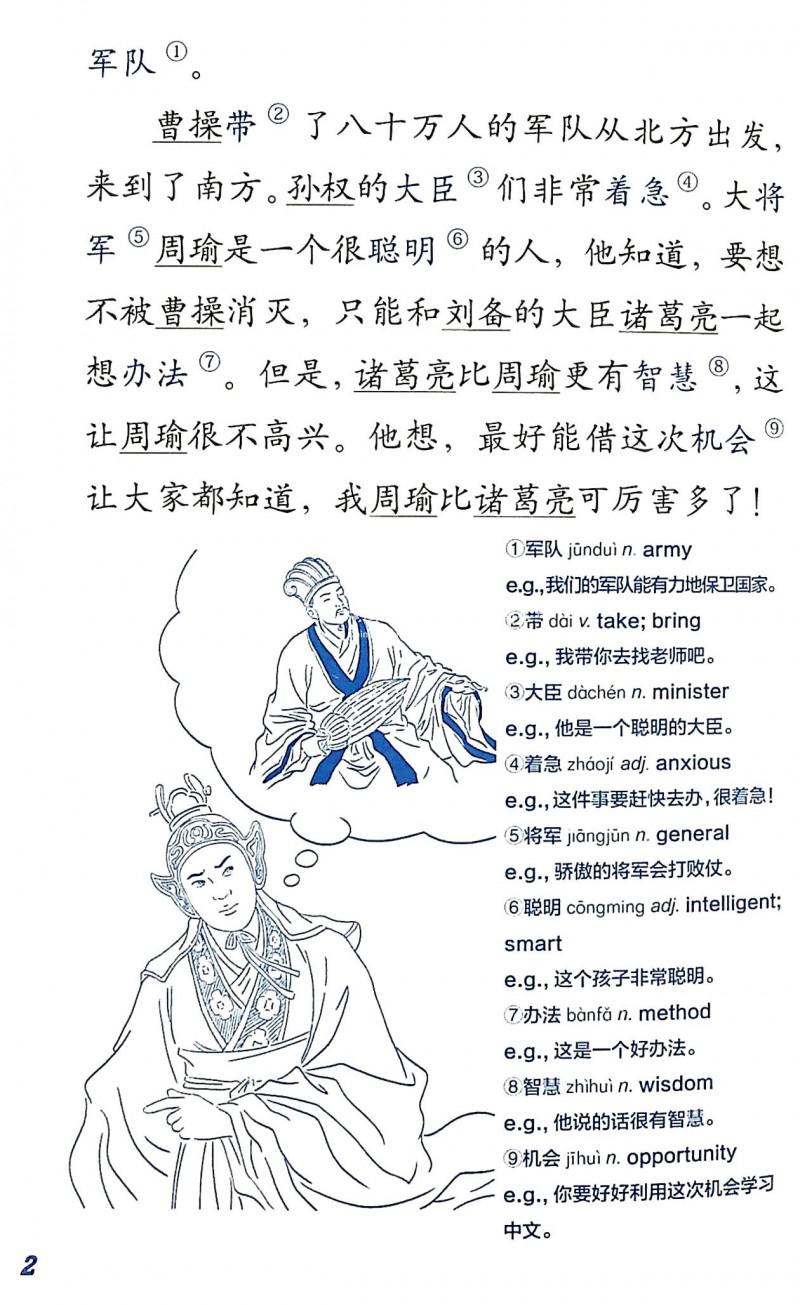 军队①。
曹操带②了八十万人的军队从北方出发,
来到了南方。孙权的大臣③们非常着急④。大将
军⑤周瑜是一个很聪明⑥的人，他知道，要想
不被曹操消灭，只能和刘备的大臣诸葛亮一起
想办法⑦。但是，诸葛亮比周瑜更有智慧⑧，这
让周瑜很不高兴。他想，最好能借这次机会⑨
让大家都知道，我周瑜比诸葛亮可厉害多了！
①军队 jūnduì n. army
e.g.,我们的军队能有力地保卫国家。
②带 dài v. take; bring
e.g., 我带你去找老师吧。
③大臣 dàchén n. minister
e.g., 他是一个聪明的大臣。
④着急 zháojí adj. anxious
e.g., 这件事要赶快去办，很着急！
⑤将军 jiāngjūn n. general
e.g., 骄傲的将军会打败仗。
⑥聪明 cōngming adj. intelligent;
smart
e.g., 这个孩子非常聪明。
⑦办法 bànfǎ n. method
e.g., 这是一个好办法。
⑧智慧 zhìhuì n. wisdom
e.g., 他说的话很有智慧。
⑨机会 jīhuì n. opportunity
e.g., 你要好好利用这次机会学习
中文。
2